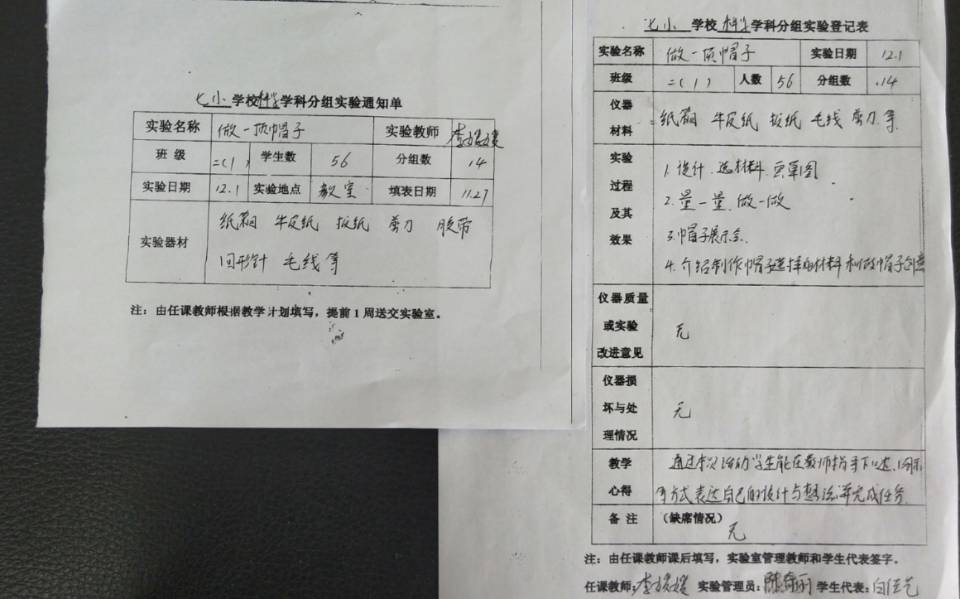 七小 学校科学学科分组实验通知单
实验名称 做一顶帽子 实验教师 李媛媛
班 级 二(1) 学生数 56 分组数 14
实验日期 12.1 实验地点 教室 填表日期 11.27
实验器材 纸箱 牛皮纸 报纸 剪刀 胶带
回形针 毛线等
注：由任课教师根据教学计划填写，提前1周送交实验室。
七小 学校科学学科分组实验登记表
实验名称 做一顶帽子 实验日期 12.1
班级 二(1) 人数 56 分组数 14
仪器
材料 纸箱 牛皮纸 报纸 毛线 剪刀 等
实验
过程
及其
效果
1.设计、选材料、画草图
2.量一量、做一做
3.帽子展示会
4.介绍制作帽子选择的材料和改帽子创意
仪器质量
或实验
改进意见
无
仪器损
坏与处
理情况
无
教学
心得
通过本次活动学生能在教师指导下口述、
等方式表达自己的设计与想法并完成任务
备 注 （缺席情况）
无
注：由任课教师课后填写，实验室管理教师和学生代表签字。
任课教师：李媛媛 实验管理员： 学生代表：